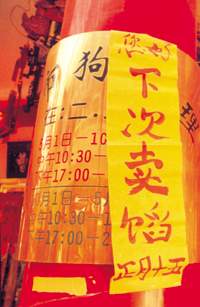 狗 理
在:二..
月1日—10
午10:30—
下午17:00—
10月1日—8
中午10:30—
下午17:00—2
您好
下次卖馅
正月十五